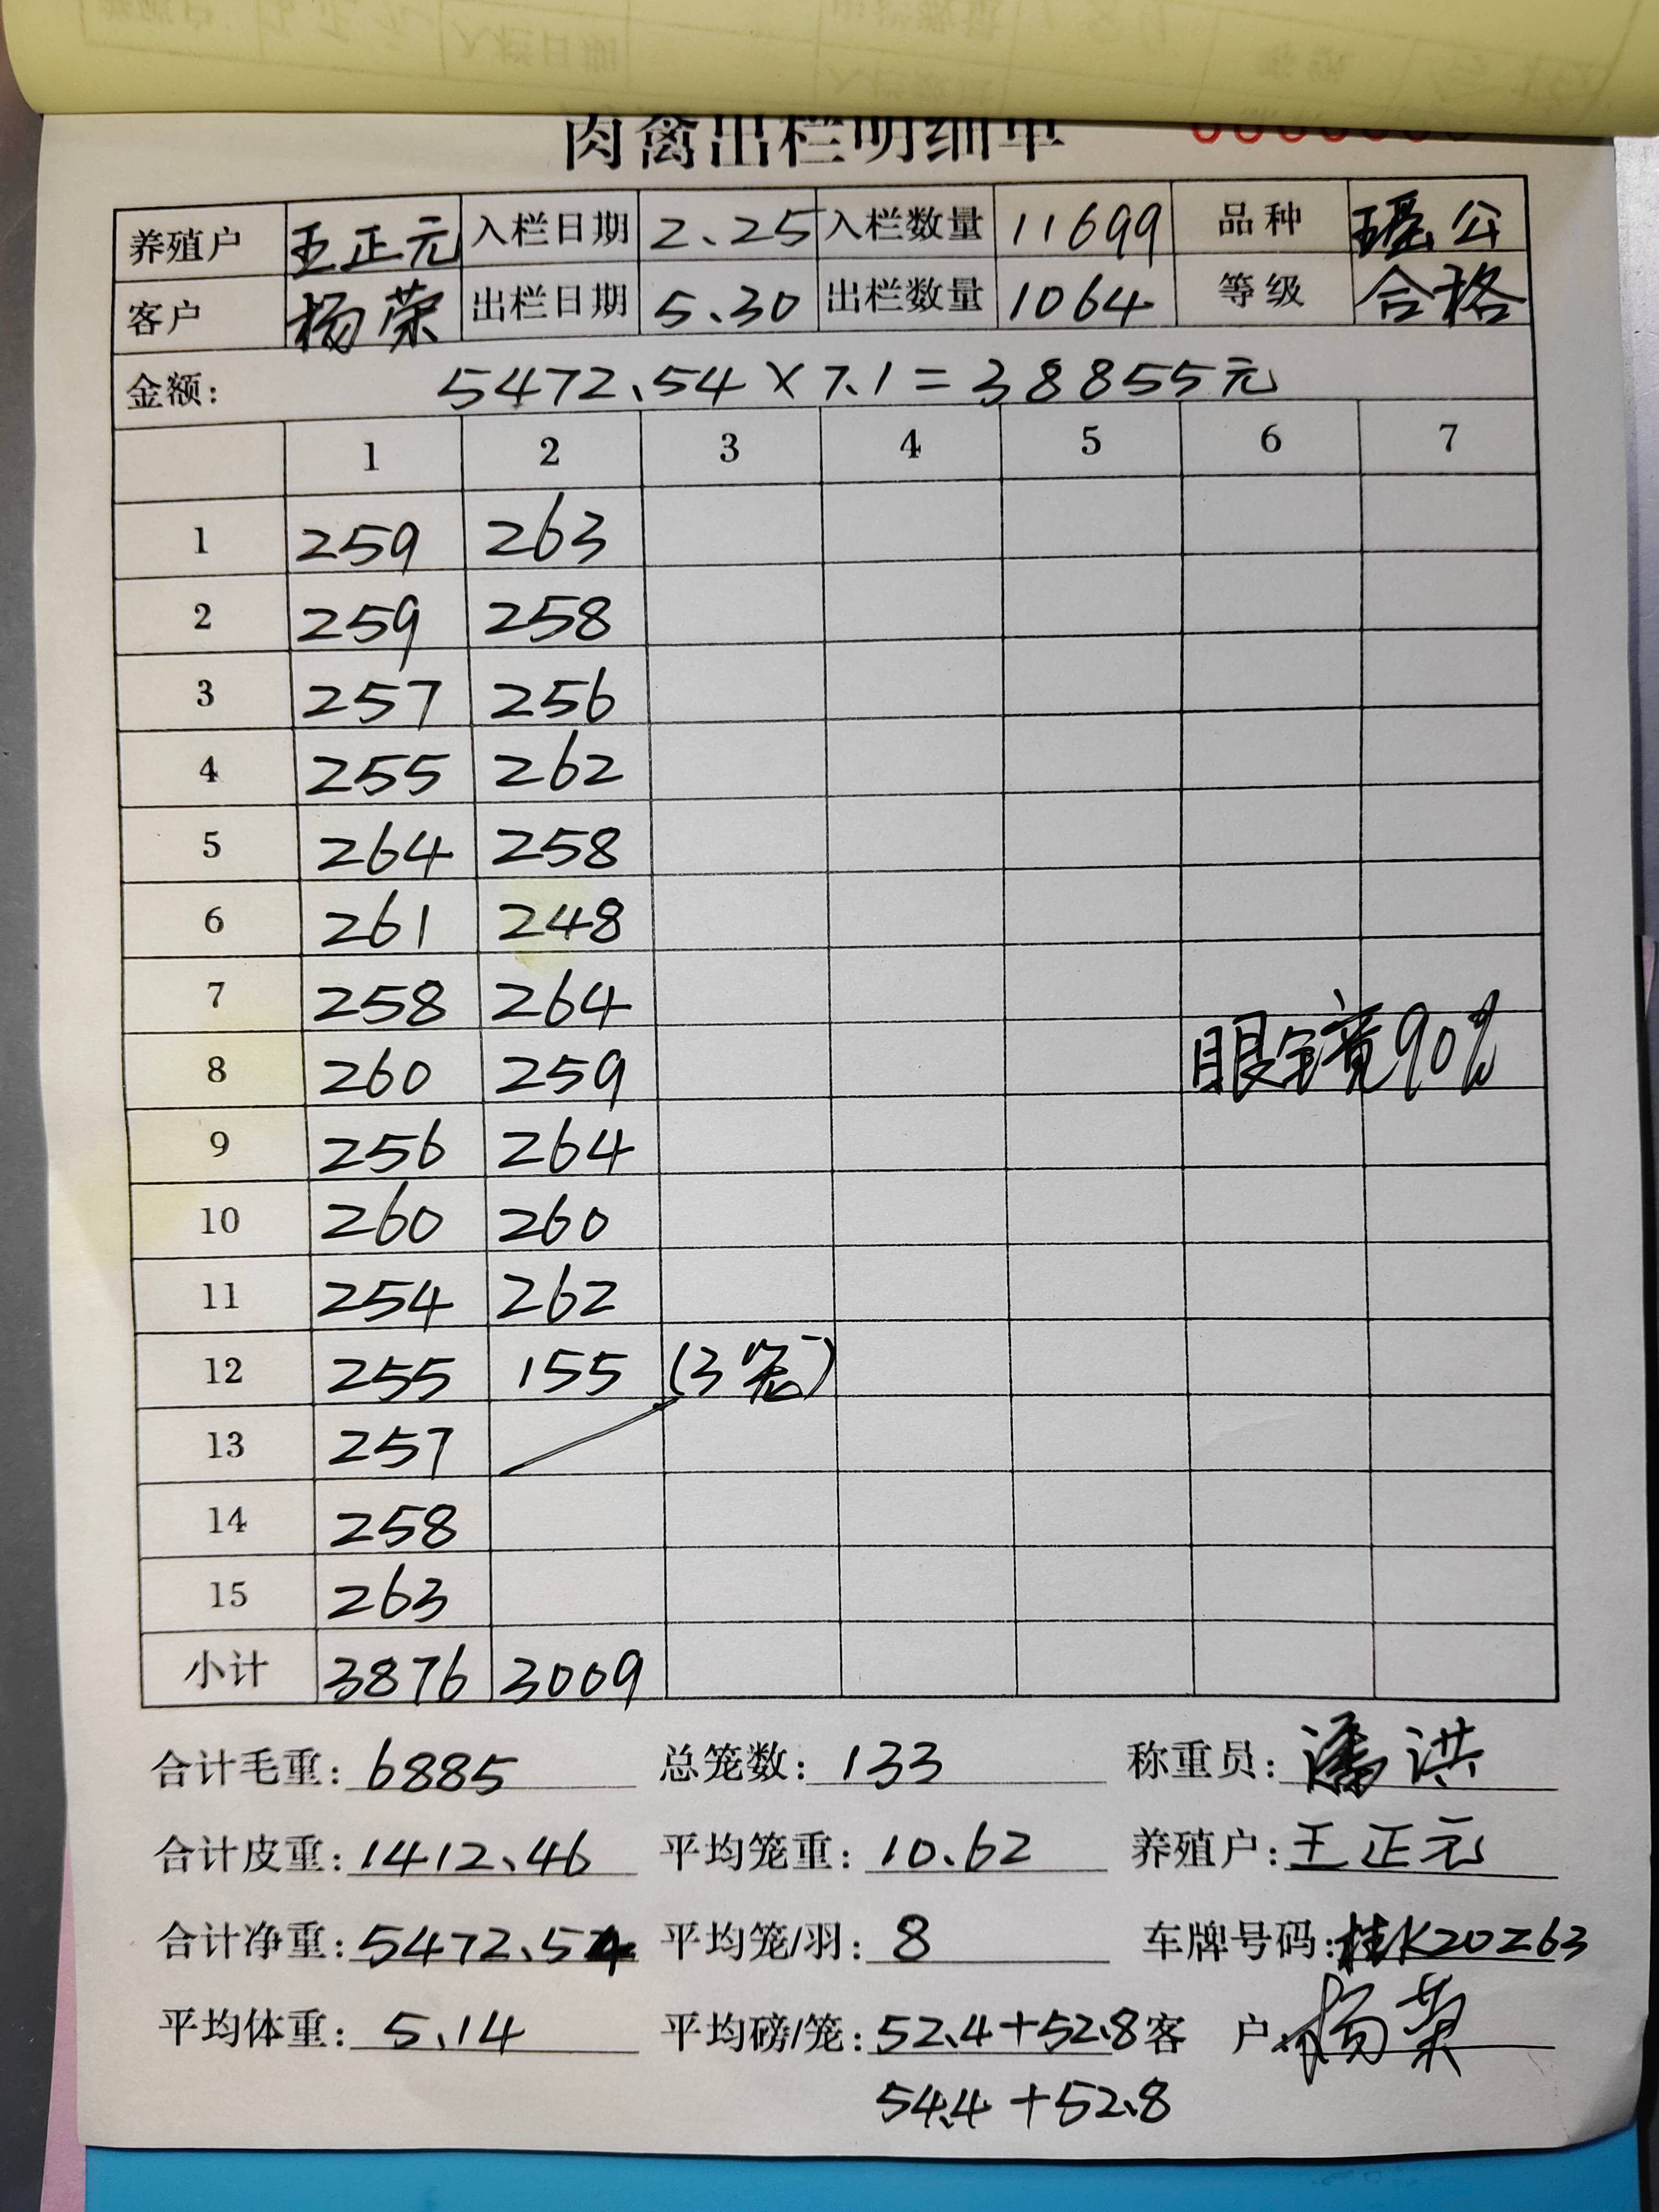 肉禽出栏明细单
养殖户 王正元 入栏日期 2.25 入栏数量 11699 品种 瑶公
客户 杨荣 出栏日期 5.30 出栏数量 1064 等级 合格
金额: 5472.54×7.1=38855元
1 2 3 4 5 6 7
1 259 263
2 259 258
3 257 256
4 255 262
5 264 258
6 261 248
7 258 264
8 260 259 眼镜90%
9 256 264
10 260 260
11 254 262
12 255 155 (3笼)
13 257
14 258
15 263
小计 3876 3009
合计毛重: 6885 总笼数: 133 称重员: 潘洪
合计皮重: 1412.46 平均笼重: 10.62 养殖户: 王正元
合计净重: 5472.54 平均笼/羽: 8 车牌号码: 桂K20Z63
平均体重: 5.14 平均磅/笼: 52.4+52.8 客 户: 杨荣
54.4+52.8